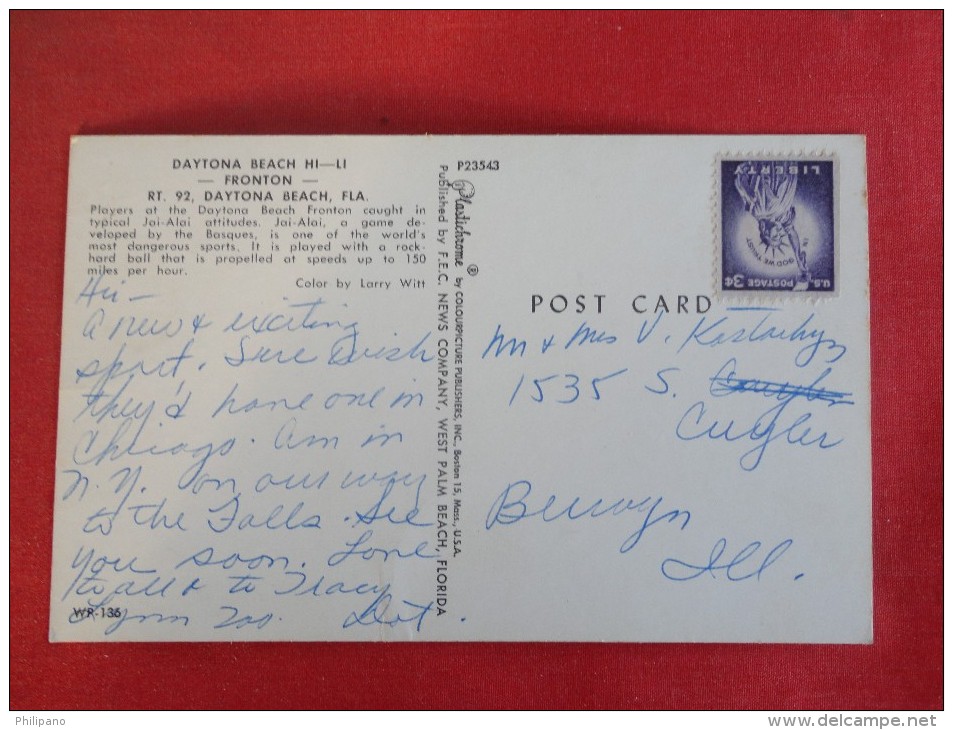 DAYTONA BEACH HI—LI
— FRONTON —
RT. 92, DAYTONA BEACH, FLA.
Players at the Daytona Beach Fronton caught in
typical Jai-Alai attitudes. Jai-Alai, a game de-
veloped by the Basques, is one of the world's
most dangerous sports. It is played with a rock-
hard ball that is propelled at speeds up to 150
miles per hour.
Color by Larry Witt
Hi —
A new & exciting
sport. Sure wish
they'd have one in
Chicago. Am in
N.Y. on our way
to the Falls. See
you soon. Love
to all & to Tracy
Lynn too. Dot.
WR-136
P23543
Plastichrome ® by COLOURPICTURE PUBLISHERS, INC., Boston 15, Mass., U.S.A.
Published by F.E.C. NEWS COMPANY, WEST PALM BEACH, FLORIDA
LIBERTY
IN GOD WE TRUST
U.S. POSTAGE 3¢
POST CARD
Mr & Mrs V.
1535 S.
Cuyler
Berwyn
Ill.
Philipano
www.delcampe.net